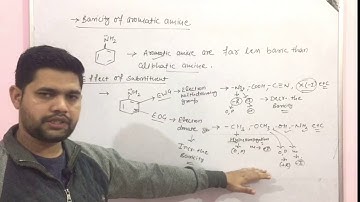 → Basicity of aromatic amine
NH2
→ Aromatic amine are far less basic than
Aliphatic amine.
Effect of substituent
NH2
EWG → Electron withdrawing group → -NO2, -COOH, -C≡N, X(-I) etc
→ Decr. the Basicity
EDG → Electron donate gp → -CH3, -OCH3, -OH, -NH2 etc
Hyperconjugation
↓
Incr. the Basicity